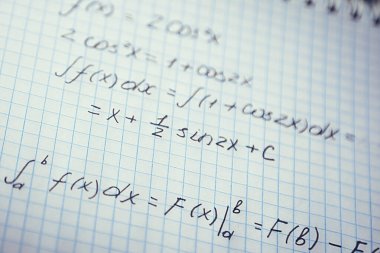 f(x) = 2cos²x
2cos²x = 1 + cos2x
∫f(x)dx = ∫(1 + cos2x)dx =
= x + 1/2 sin2x + C
∫ₐᵇ f(x)dx = F(x)|ₐᵇ = F(b) − F(